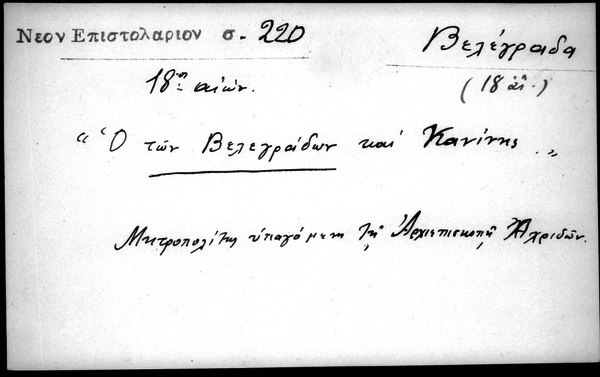 Νεον Επιστολαριον σ. 220
Βελέγραδα
18ος αιών.
(18 αἰ.)
“ Ὁ τῶν Βελεγράδων καί Κανίνης „
Μητροπολίτης ὑπαγόμενη τῇ Ἀρχιεπισκοπῇ Ἀχριδῶν.